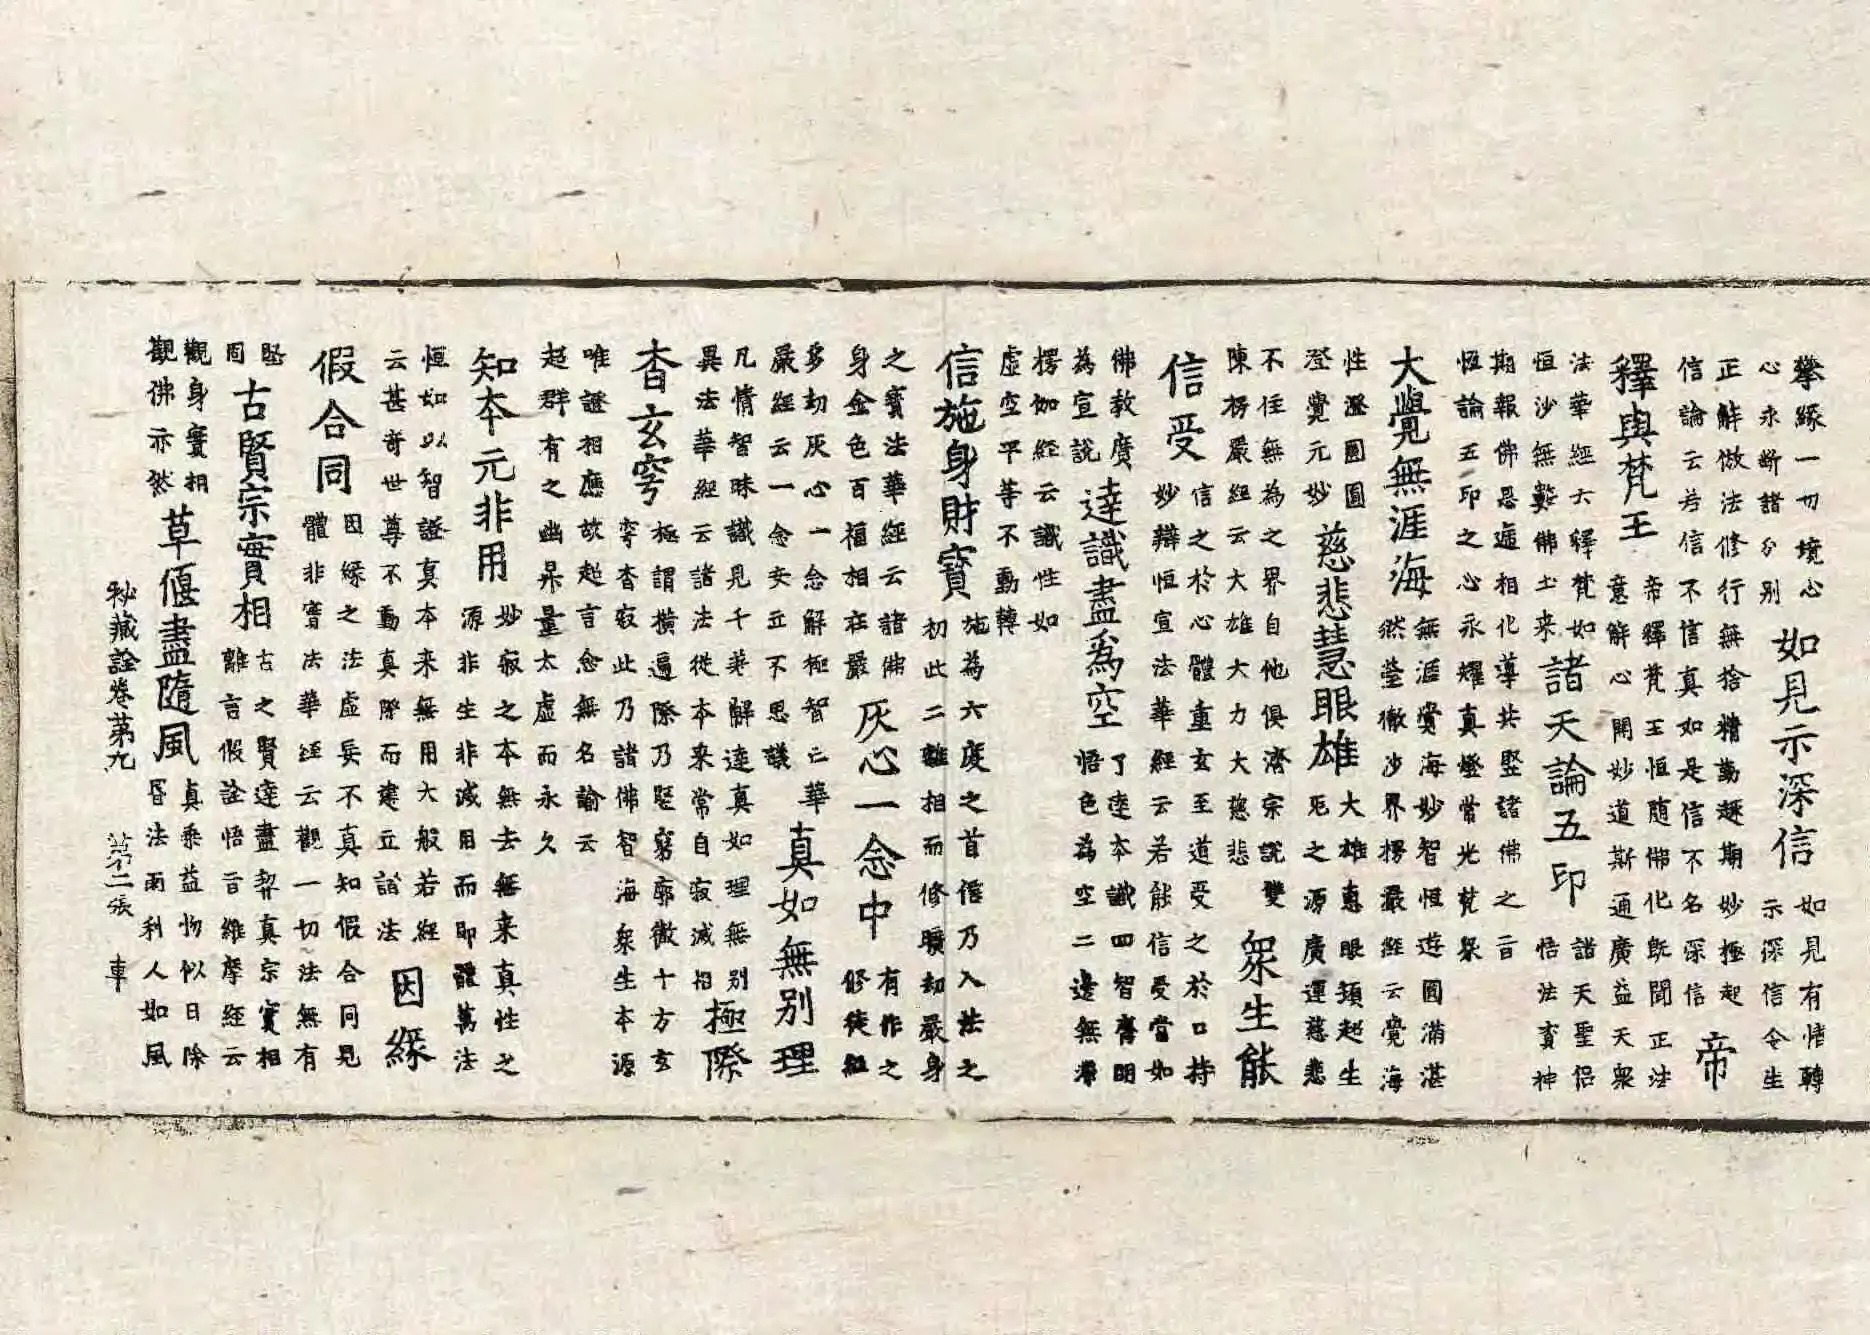 攀緣一切境心
心永断諸分別
如見示深信
如見有悟轉
示深信令生
正解倣法修行無捨精勤趣期妙極起
信論云若信不信真如是信不名深信
帝
釋與梵王
帝釋梵王恒随佛化既聞正法
意解心開妙道斯通廣益天衆
法華經云釋梵如
恒沙無數佛土来
諸天論五印
諸天聖侶
悟法賓神
期報佛恩遞相化導共竪諸佛之旨
恒論五印之心永耀真燈常光梵
大覺無涯海
無涯覺海妙智恒遊圓滿湛
然瑩徹沙界楞嚴經云覺海
性澄圓圓
澄覺元妙
慈悲慧眼雄
大雄惠眼頭超生
死之源廣運慈悲
不住無為之界自他俱濟宗說雙
陳楞嚴經云大雄大力大慈悲
衆生能
信受
信之於心體重玄至道受之於口持
妙辯恒宣法華經云若能信受當如
佛教廣
為宣説
達識盡為空
了達本識四智齊明
悟色為空二邊無滯
楞伽經云識性如
虛空平等不動轉
信施身財寳
施為六度之首信乃入法之
初此二離相而修曠劫嚴身
之寳法華經云諸佛
身金色百福相在嚴
灰心一念中
有作之
修徒經
多劫灰心一念解極智亡華
嚴經云一念安立不思議
真如無别理
凡情智昧識見千差解達真如理無别
異法華經云諸法從本来常自寂滅相
極際
杳玄穹
極謂横遍際乃竪窮廓徹十方玄
穹杳寂此乃諸佛智海衆生本源
唯證相應故超言念無名論云
超群有之幽昇量太虛而永久
知本元非用
妙寂之本無去無来真性之
源非生非滅用而即體萬法
恒如以智證真本来無用大般若經
云甚奇世尊不動真際而建立諸法
因緣
假合同
因緣之法虛妄不真知假合同見
體非實法華經云觀一切法無有
堅
固
古賢宗實相
古之賢達盡契真宗實相
離言假詮悟旨維摩經云
觀身實相
觀佛亦然
草偃盡隨風
真乘益物似日除
昏法雨利人如風
秘藏詮卷第九 第二張 車